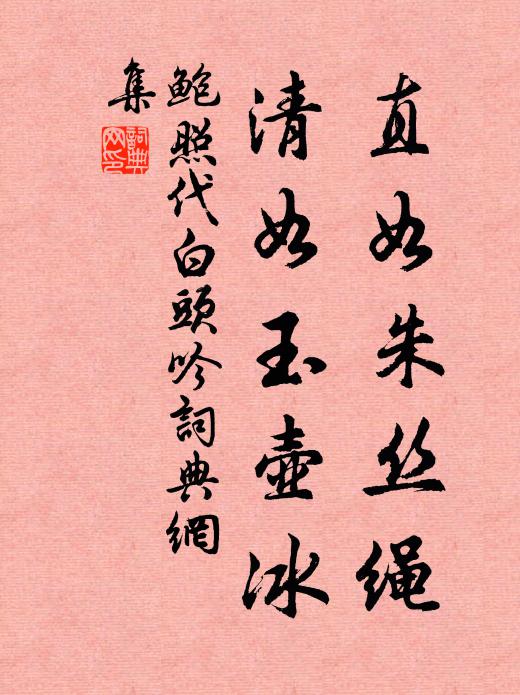 直如朱丝绳
清如玉壶冰
鲍照代白頭吟詞典網
集
詞典网印